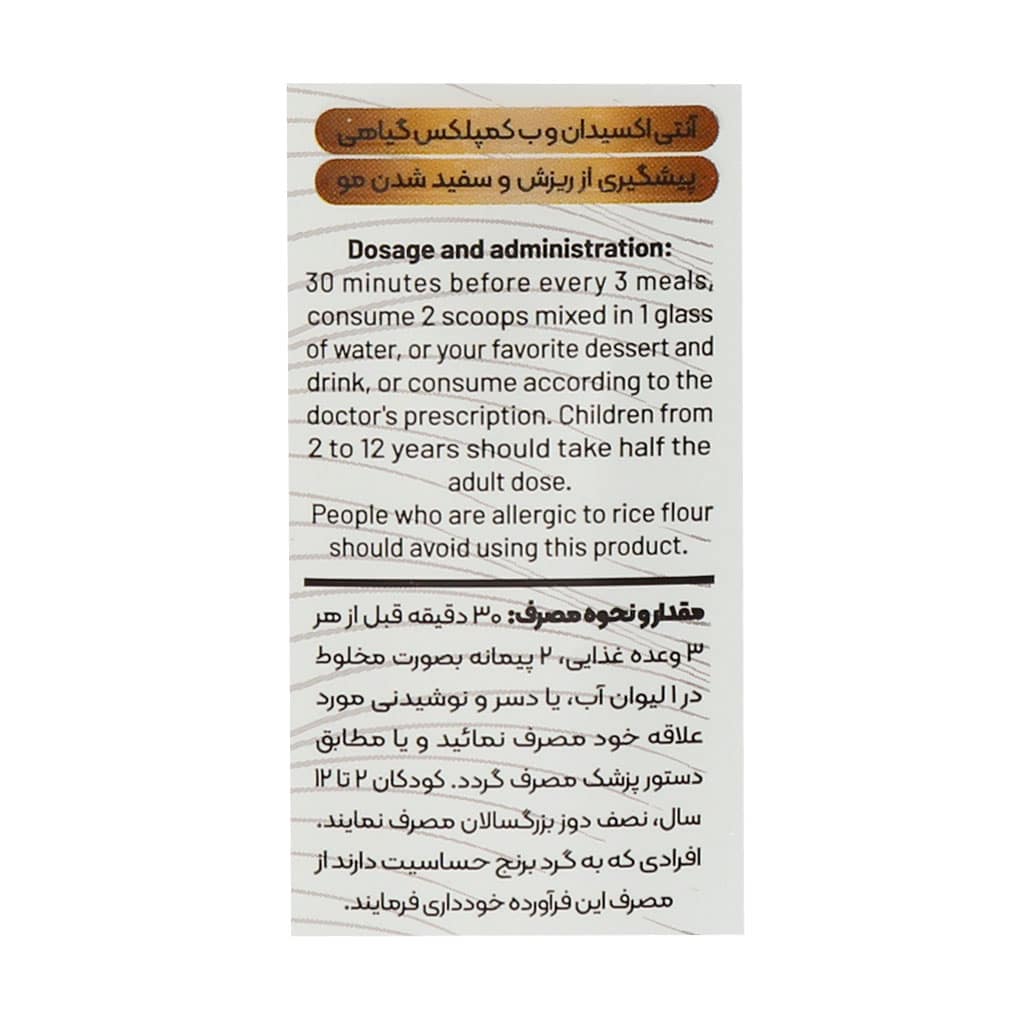 آنتی اکسیدان و ب کمپلکس گیاهی
پیشگیری از ریزش و سفید شدن مو
Dosage and administration:
30 minutes before every 3 meals,
consume 2 scoops mixed in 1 glass
of water, or your favorite dessert and
drink, or consume according to the
doctor's prescription. Children from
2 to 12 years should take half the
adult dose.
People who are allergic to rice flour
should avoid using this product.
مقدار و نحوه مصرف: ۳۰ دقیقه قبل از هر
۳ وعده غذایی، ۲ پیمانه بصورت مخلوط
در ۱ لیوان آب، یا دسر و نوشیدنی مورد
علاقه خود مصرف نمائید و یا مطابق
دستور پزشک مصرف گردد. کودکان ۲ تا ۱۲
سال، نصف دوز بزرگسالان مصرف نمایند.
افرادی که به گرد برنج حساسیت دارند از
مصرف این فرآورده خودداری فرمایند.